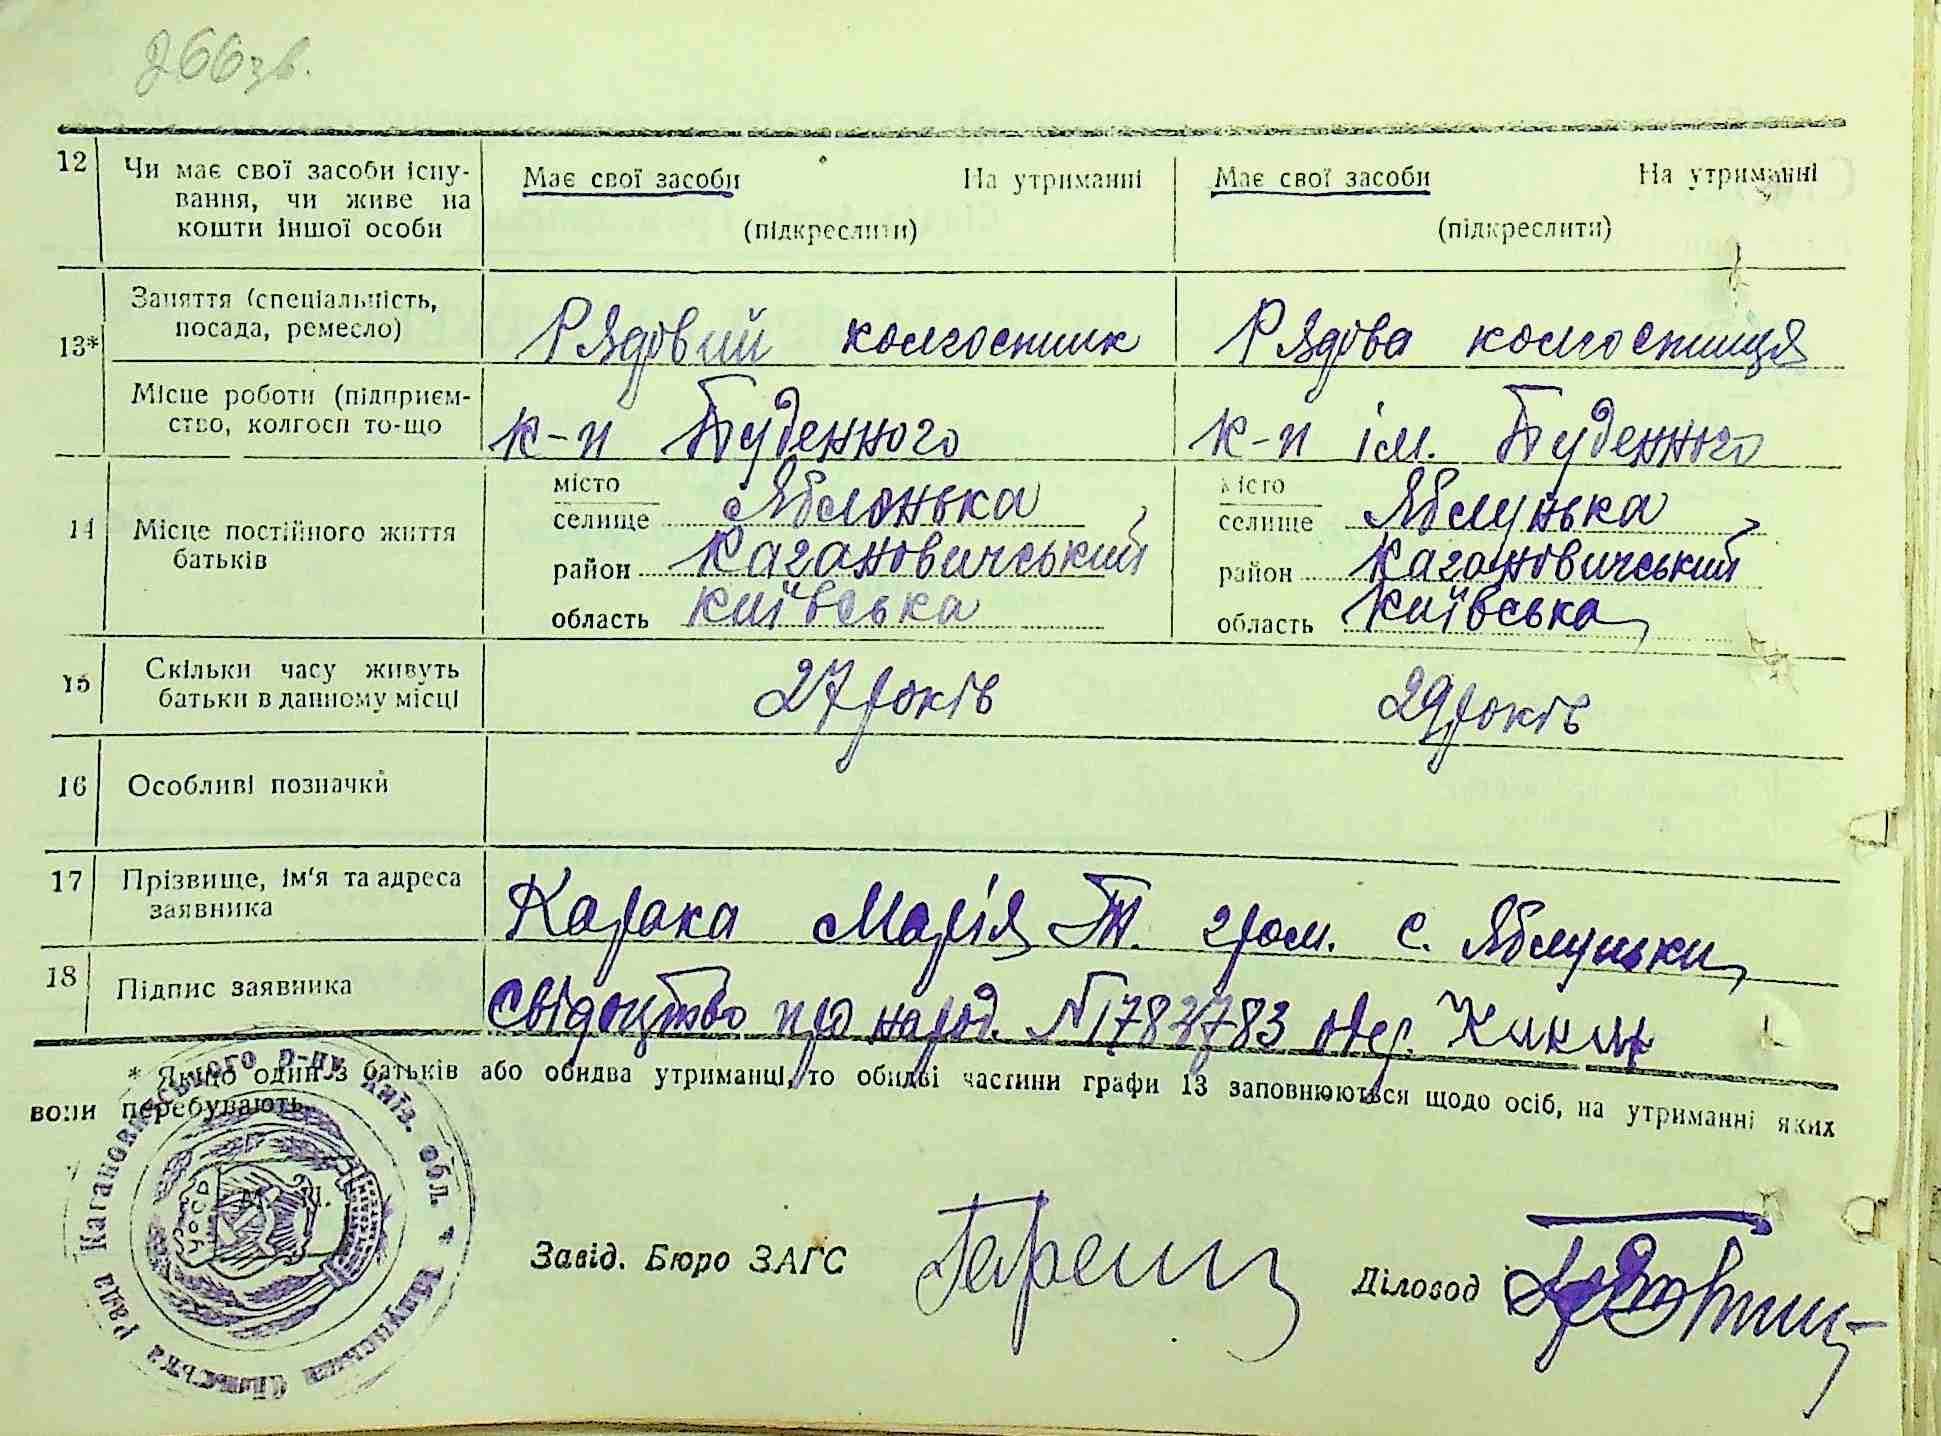 266зв.
12 Чи має свої засоби існу-
вання, чи живе на
кошти іншої особи
Має свої засоби На утриманні
(підкреслити)
Має свої засоби На утриманні
(підкреслити)
13* Заняття (спеціальність,
посада, ремесло)
Рядовий колгоспник
Рядова колгоспниця
Місце роботи (підприєм-
ство, колгосп то-що
к-п Буденного
к-п ім. Буденного
14 Місце постійного життя
батьків
місто
селище Яблонька
район Кагановичський
область Київська
місто
селище Яблунька
район Кагановичський
область Київська
15 Скільки часу живуть
батьки в данному місці
27 років
29 років
16 Особливі позначки
17 Прізвище, ім'я та адреса
заявника
Карака Марія Т. гром. с. Яблуньки
18 Підпис заявника
Свідоцтво про народ. № 1783783 одер.
* Якщо один з батьків або обидва утриманці, то обидві частини графи 13 заповнюються щодо осіб, на утриманні яких
вони перебувають.
М. П.
Завід. Бюро ЗАГС
Діловод
Сільська рада Кагановичського р-ну Київ. обл.